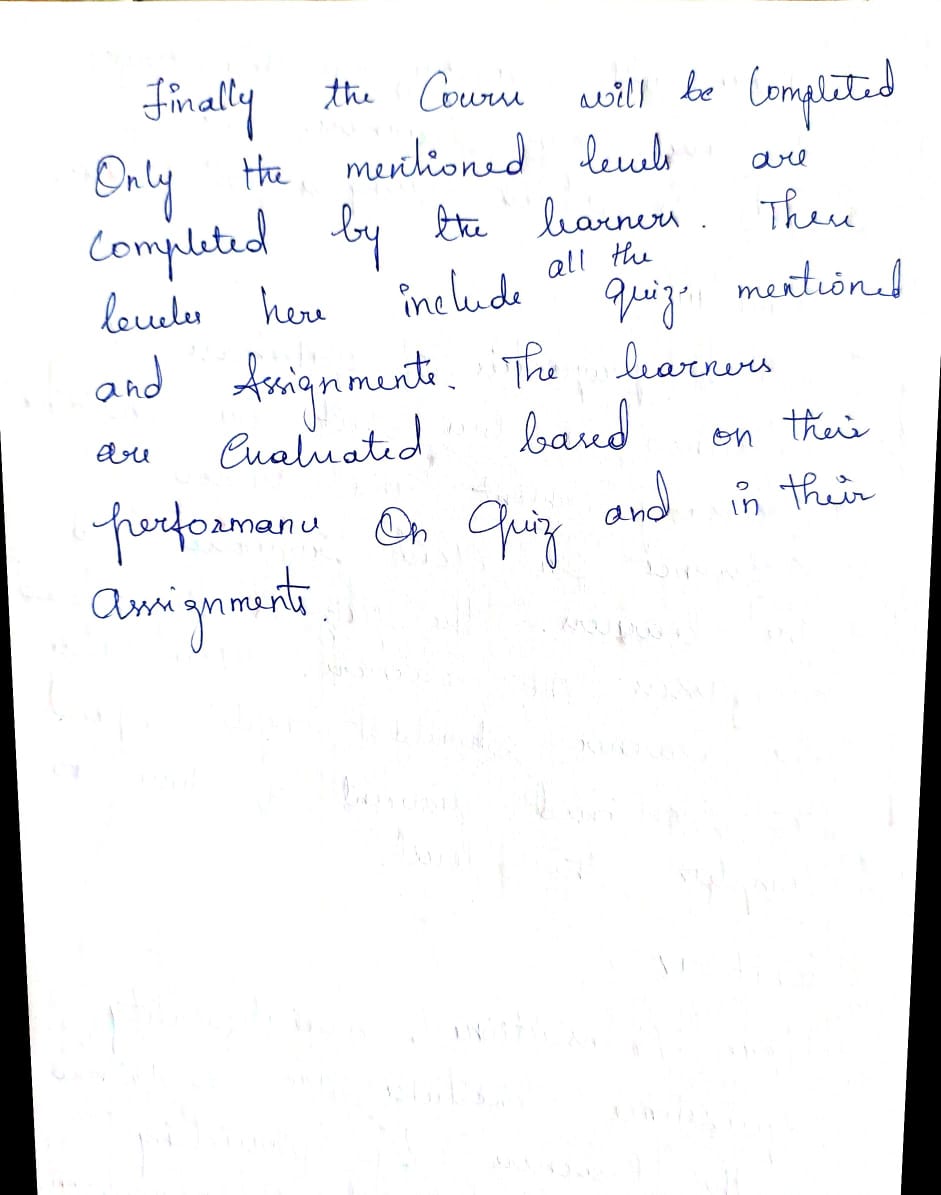 Finally the Course will be Completed
Only the mentioned levels are
Completed by the learners. These
levels here include all the quiz mentioned
and Assignments. The learners
are Evaluated based on their
performance On Quiz and in their
assignments.